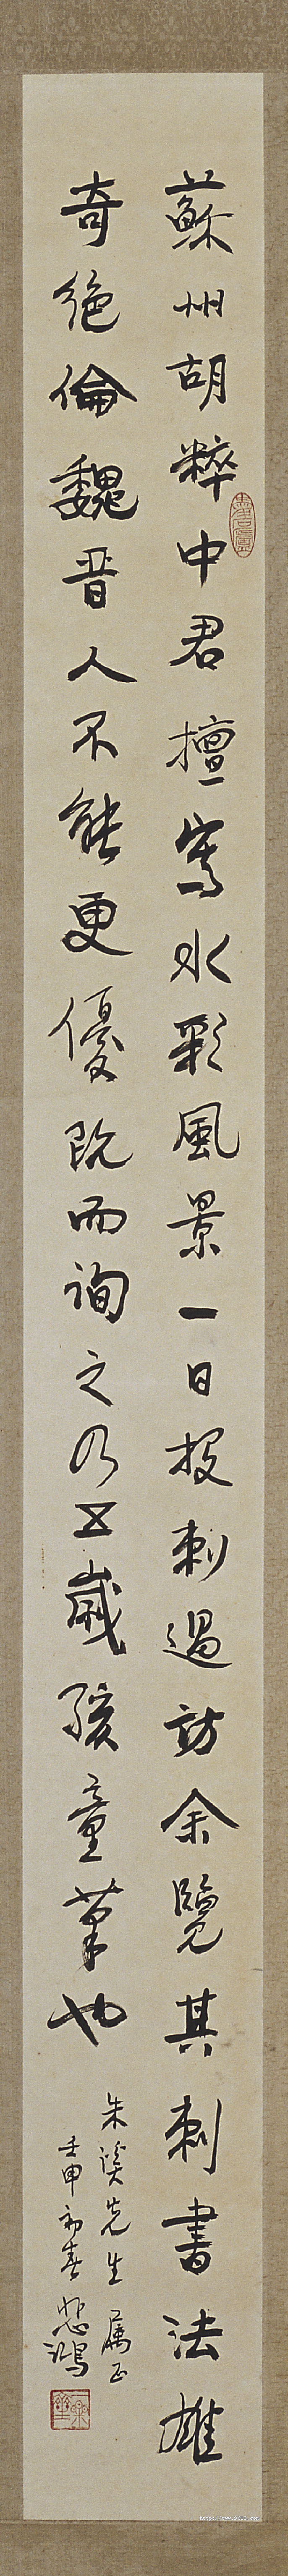 蘇州胡粹中君擅寫水彩風景一日投刺過訪余覽其刺書法雄
奇絕倫魏晋人不能更優既而詢之乃五歲孩童筆也
朱溪先生属正
壬申初春悲鴻